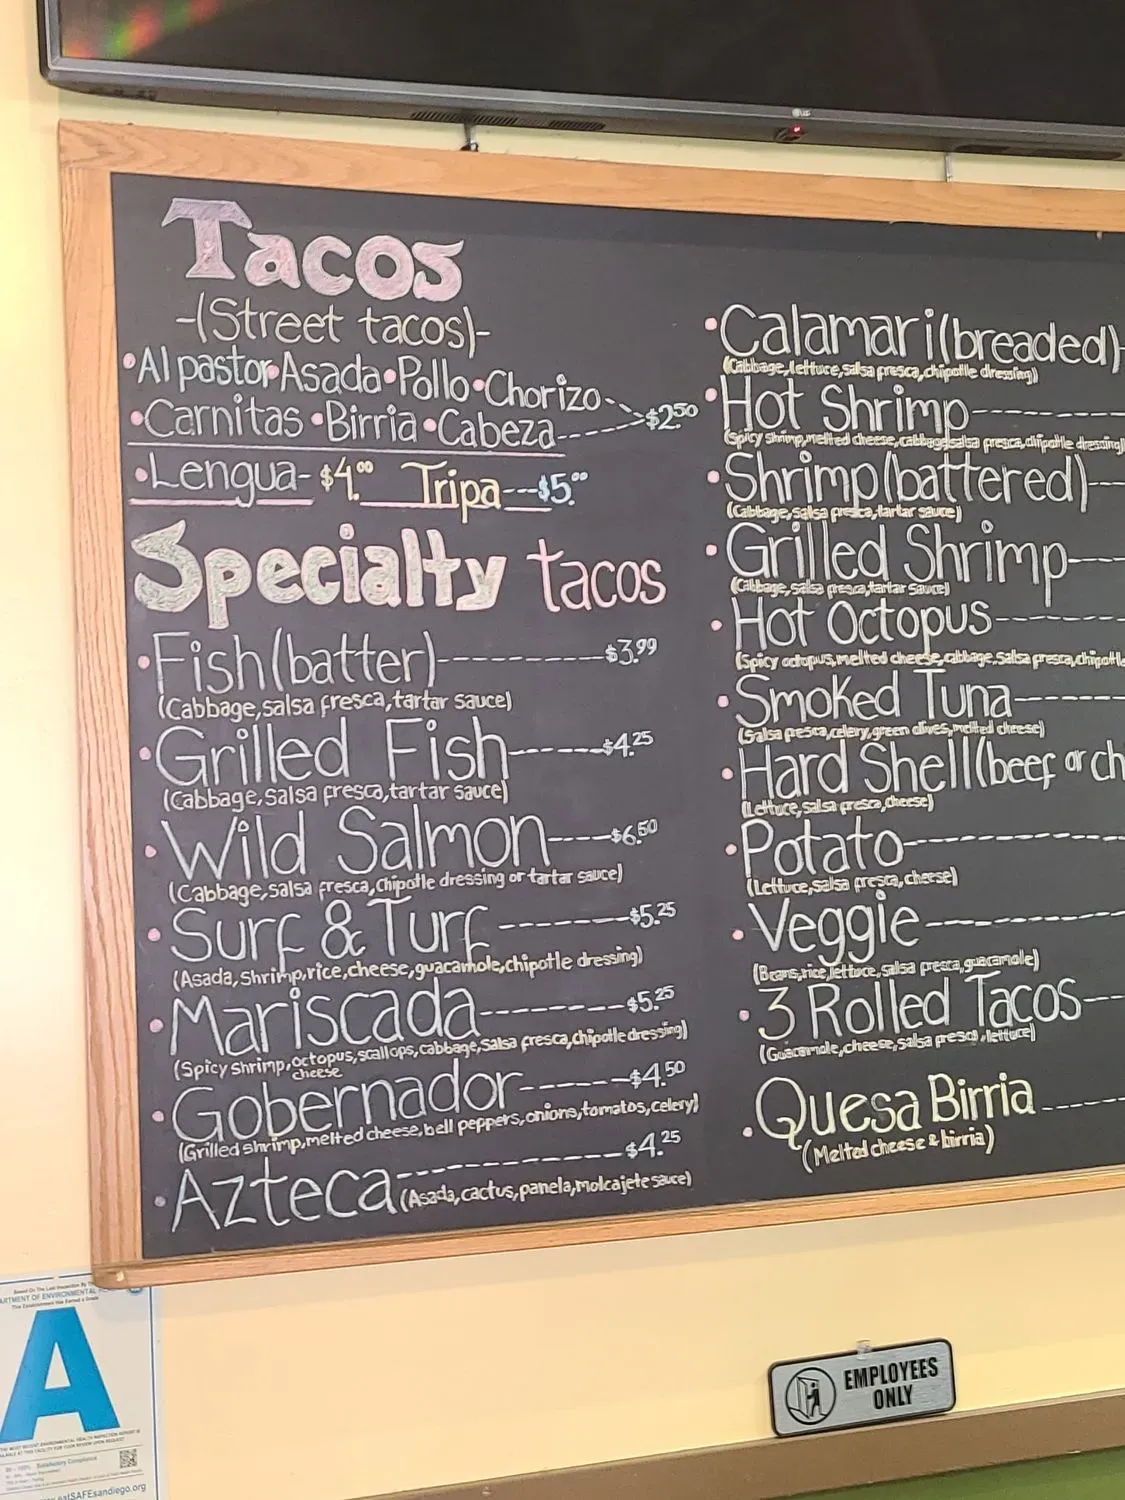 Tacos
-(Street tacos)-
•Al pastor•Asada•Pollo•Chorizo
•Carnitas•Birria•Cabeza---$2.50
•Lengua-$4.00 Tripa---$5.00
Specialty tacos
•Fish(batter)----------$3.99
(Cabbage,salsa fresca,tartar sauce)
•Grilled Fish------$4.25
(Cabbage,salsa fresca,tartar sauce)
•Wild Salmon----$6.50
(Cabbage,salsa fresca,chipotle dressing or tartar sauce)
•Surf & Turf-------$5.25
(Asada,shrimp,rice,cheese,guacamole,chipotle dressing)
•Mariscada--------$5.25
(Spicy shrimp,octopus,scallops,cabbage,salsa fresca,chipotle dressing)
cheese
•Gobernador------$4.50
(Grilled shrimp,melted cheese,bell peppers,onions,tomatos,celery)
•Azteca------------$4.25
(Asada,cactus,panela,molcajete sauce)
•Calamari(breaded)-
(Cabbage,lettuce,salsa fresca,chipotle dressing)
•Hot Shrimp-------
(Spicy shrimp,melted cheese,cabbage,salsa fresca,chipotle dressing)
•Shrimp(battered)--
(Cabbage,salsa fresca,tartar sauce)
•Grilled Shrimp---
(Cabbage,salsa fresca,tartar sauce)
•Hot Octopus------
(Spicy octopus,melted cheese,cabbage,salsa fresca,chipotle
•Smoked Tuna-----
(Salsa fresca,celery,green olives,melted cheese)
•Hard Shell(beef or ch
(Lettuce,salsa fresca,cheese)
•Potato----------
(Lettuce,salsa fresca,cheese)
•Veggie---------
(Beans,rice,lettuce,salsa fresca,guacamole)
•3 Rolled Tacos--
(Guacamole,cheese,salsa fresca,lettuce)
•Quesa Birria----
(Melted cheese & birria)
Based On The Last Inspection By
ARTMENT OF ENVIRONMENTAL
This Establishment Has Earned a Grade
A
eatSAFEsandiego.org
EMPLOYEES
ONLY